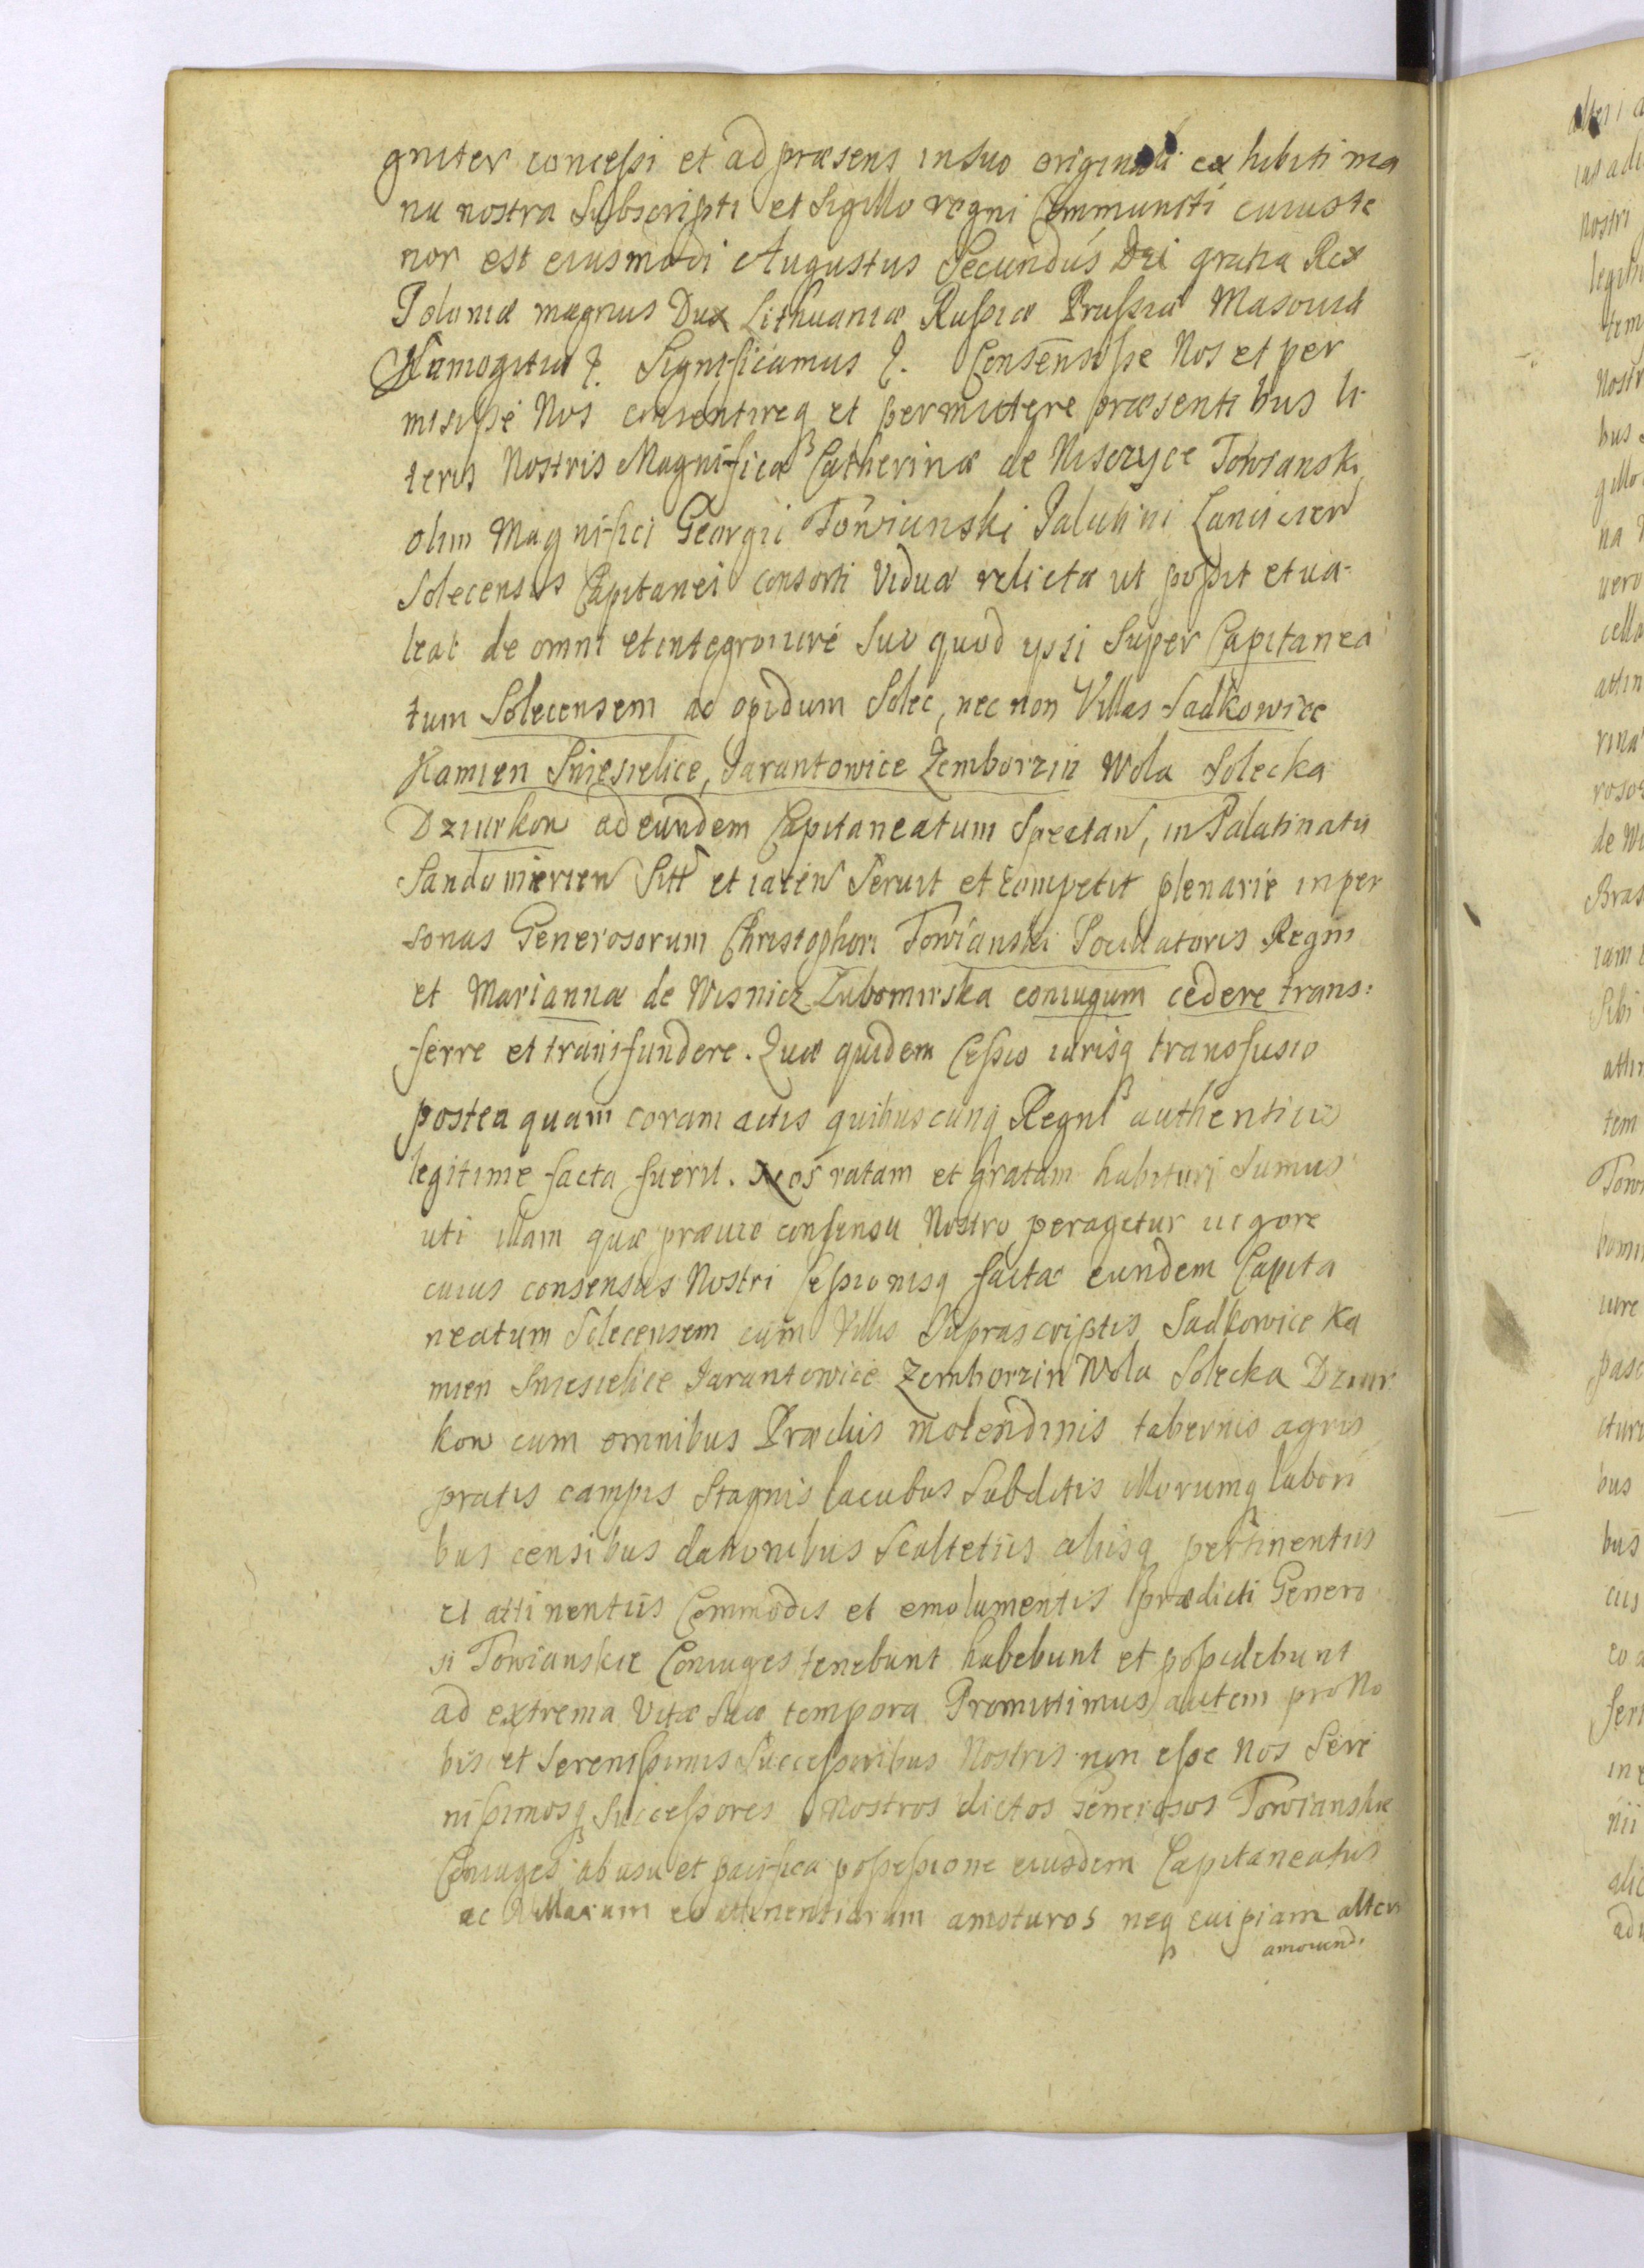 gniter concessi et ad præsens in suo originali exhibiti ma
nu nostra Subscripti et Sigillo regni Communiti cuius te
nor est eiusmodi Augustus Secundus Dei gratia Rex
Poloniæ magnus Dux Lithuaniæ Russiæ Prussiæ Masoviæ
Samogitiæ &. Significamus &. Consensisse Nos et per
misisse Nos consentireq et permittere præsentibus li-
teris Nostris Magnificæ Catherinæ de Niszczyce Towianski
olim Magnifici Georgii Towianski Palatini Lancicien
Solecensis Capitanei consorti Viduæ relictæ ut possit et va-
leat de omni et integro iure suo quod ipsi Super Capitanea
tum Solecensem ac opidum Solec, nec non Villas Sadkowice
Kamien Sniesielice, Jarantowice Zemborzin Wola Solecka
Dziurkow ad eundem Capitaneatum Spectan, in Palatinatu
Sandomirien Sitt et iacen Servit et competit plenarie in per
sonas Generosorum Christophori Towianski Pocillatoris Regni
et Mariannæ de Wisnicz Lubomirska coniugum cedere trans:
ferre et transfundere. Quæ quidem Cessio iurisq transfusio
postea quam coram actis quibuscunq Regni authenticis
legitime facta fuerit. Nos ratam et gratam habituri Sumus
uti illam quæ prævio consensu Nostro peragetur vigore
cuius consensus Nostri Cessionisq factæ eundem Capita
neatum Solecensem cum Villis Suprascriptis Sadkowice Ka
mien Sniesielice Jarantowice Zemborzin Wola Solecka Dziur
kow cum omnibus Prædiis molendinis tabernis agris
pratis campis Stagnis lacubus Subditis illorumq labori
bus censibus dationibus Scultetiis aliisq pertinentiis
et attinentiis Commodis et emolumentis prædicti Genero
si Towianskie Coniuges tenebunt habebunt et possidebunt
ad extrema Vitæ suæ tempora Promittimus autem pro No
bis et Serenissimis Successoribus Nostris non esse Nos Sere
nissimosq Successores Nostros dictos Generosos Towianskie
Coniuges ab usu et pacifica possessione eiusdem Capitaneatus
ac Villarum eo attinentiarum amoturos neq cuipiam alteri
amovend.